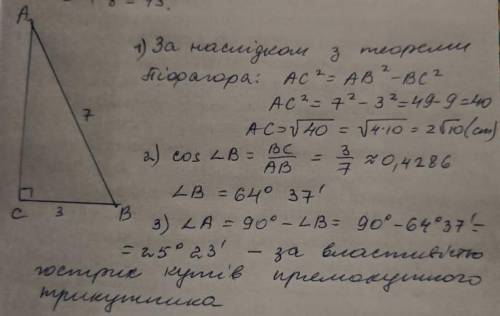 A
7
C
3
B
1) За наслідком з теореми
Піфагора: AC² = AB² - BC²
AC² = 7² - 3² = 49 - 9 = 40
AC = √40 = √4·10 = 2√10 (cm)
2) cos ∠B = BC/AB = 3/7 ≈ 0,4286
∠B = 64° 37'
3) ∠A = 90° - ∠B = 90° - 64° 37' =
= 25° 23' – за властивістю
гострих кутів прямокутного
трикутника